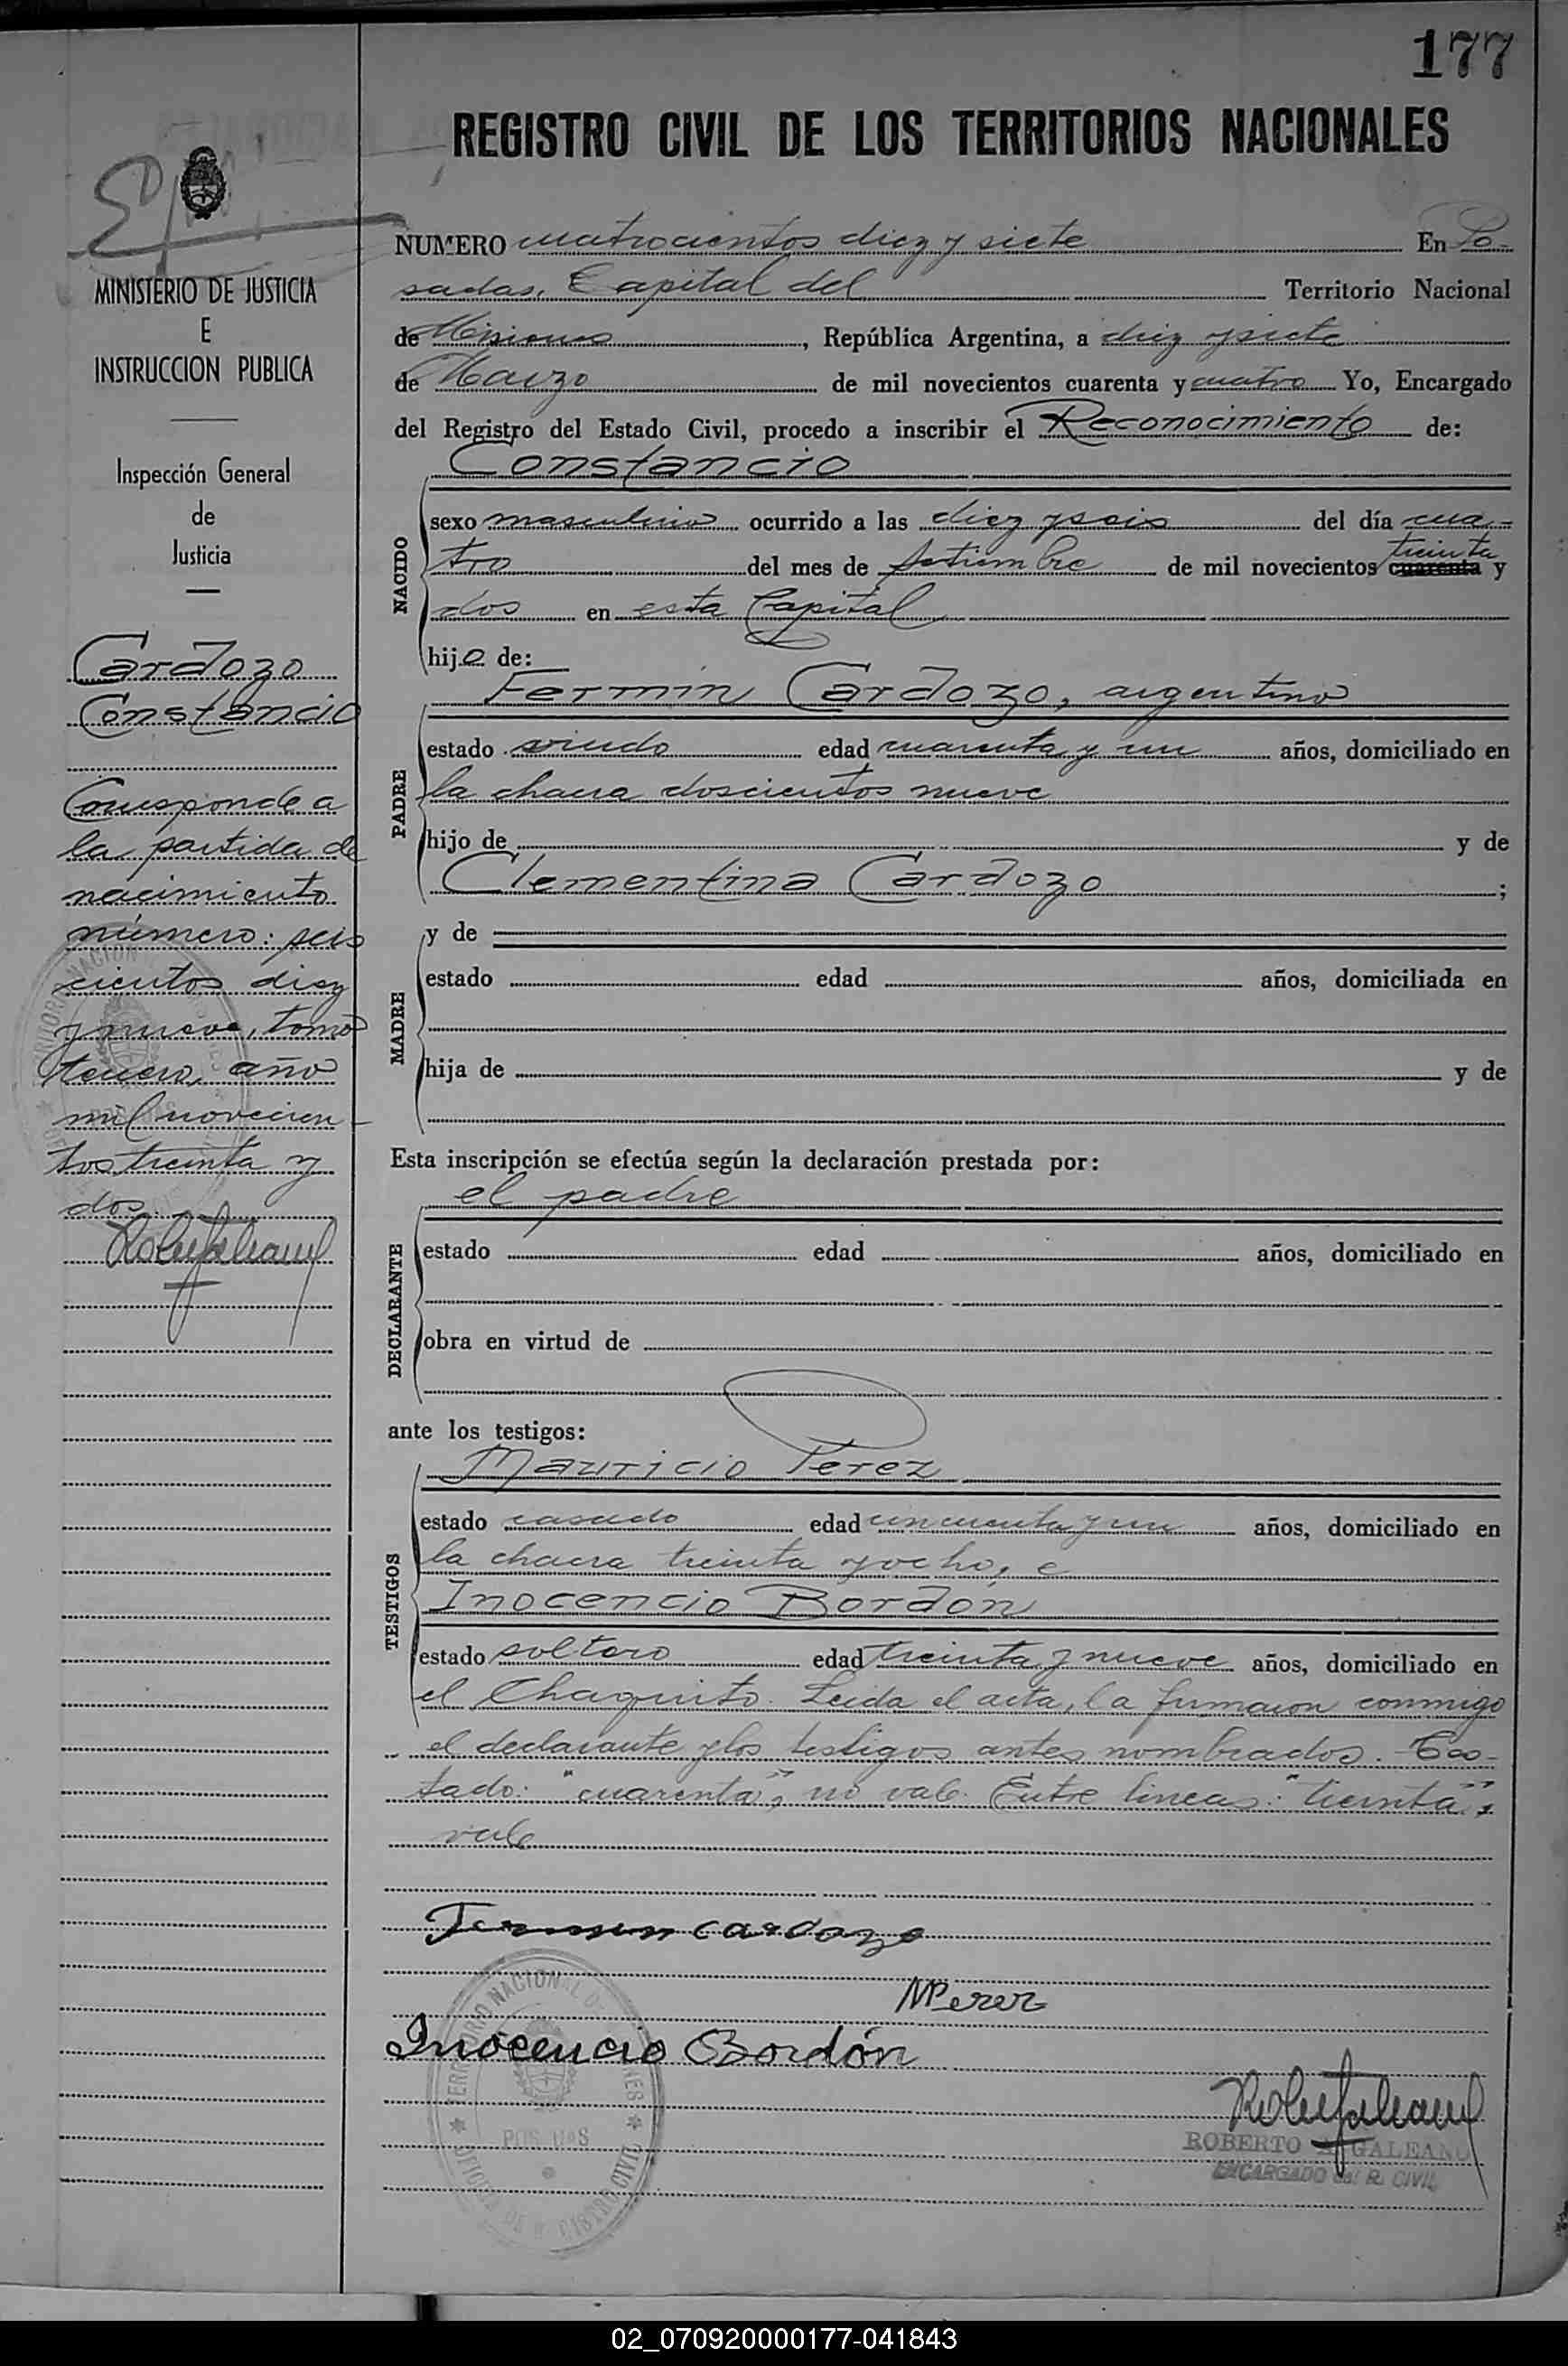 177
REGISTRO CIVIL DE LOS TERRITORIOS NACIONALES
MINISTERIO DE JUSTICIA
E
INSTRUCCION PUBLICA
Inspección General
de
Justicia
Cardozo
Constancio
Corresponde a
la partida de
nacimiento
número: seis
cientos diez
y nueve, tomo
tercero, año
mil novecien-
tos treinta y
dos.
NUMERO cuatrocientos diez y siete En Po-
sadas, Capital del Territorio Nacional
de Misiones, República Argentina, a diez y siete
de Marzo de mil novecientos cuarenta y cuatro Yo, Encargado
del Registro del Estado Civil, procedo a inscribir el Reconocimiento de:
Constancio
NACIDO
sexo masculino ocurrido a las diez y seis del día cua-
treinta
tro del mes de setiembre de mil novecientos cuarenta y
dos en esta Capital
hijo de:
Fermín Cardozo, argentino
PADRE
estado viudo edad cuarenta y un años, domiciliado en
la chacra doscientos nueve
hijo de y de
Clementina Cardozo ;
MADRE
y de
estado edad años, domiciliada en
hija de y de
Esta inscripción se efectúa según la declaración prestada por:
el padre
DECLARANTE
estado edad años, domiciliado en
obra en virtud de
ante los testigos:
Mauricio Perez
TESTIGOS
estado casado edad cincuenta y un años, domiciliado en
la chacra treinta y ocho, e
Inocencio Bordón
estado soltero edad treinta y nueve años, domiciliado en
el Chaquito. Leida el acta, la firmaron conmigo
el declarante y los testigos antes nombrados. Tes-
tado: "cuarenta", no vale. Entre lineas: "treinta",
vale
Fermin cardozo
MPerez
Inocencio Bordón
TERRITORIO NACIONAL DE MISIONES
POSADAS
OFICINA DE REGISTRO CIVIL
ROBERTO GALEANO
ENCARGADO del R. CIVIL
02_070920000177-041843